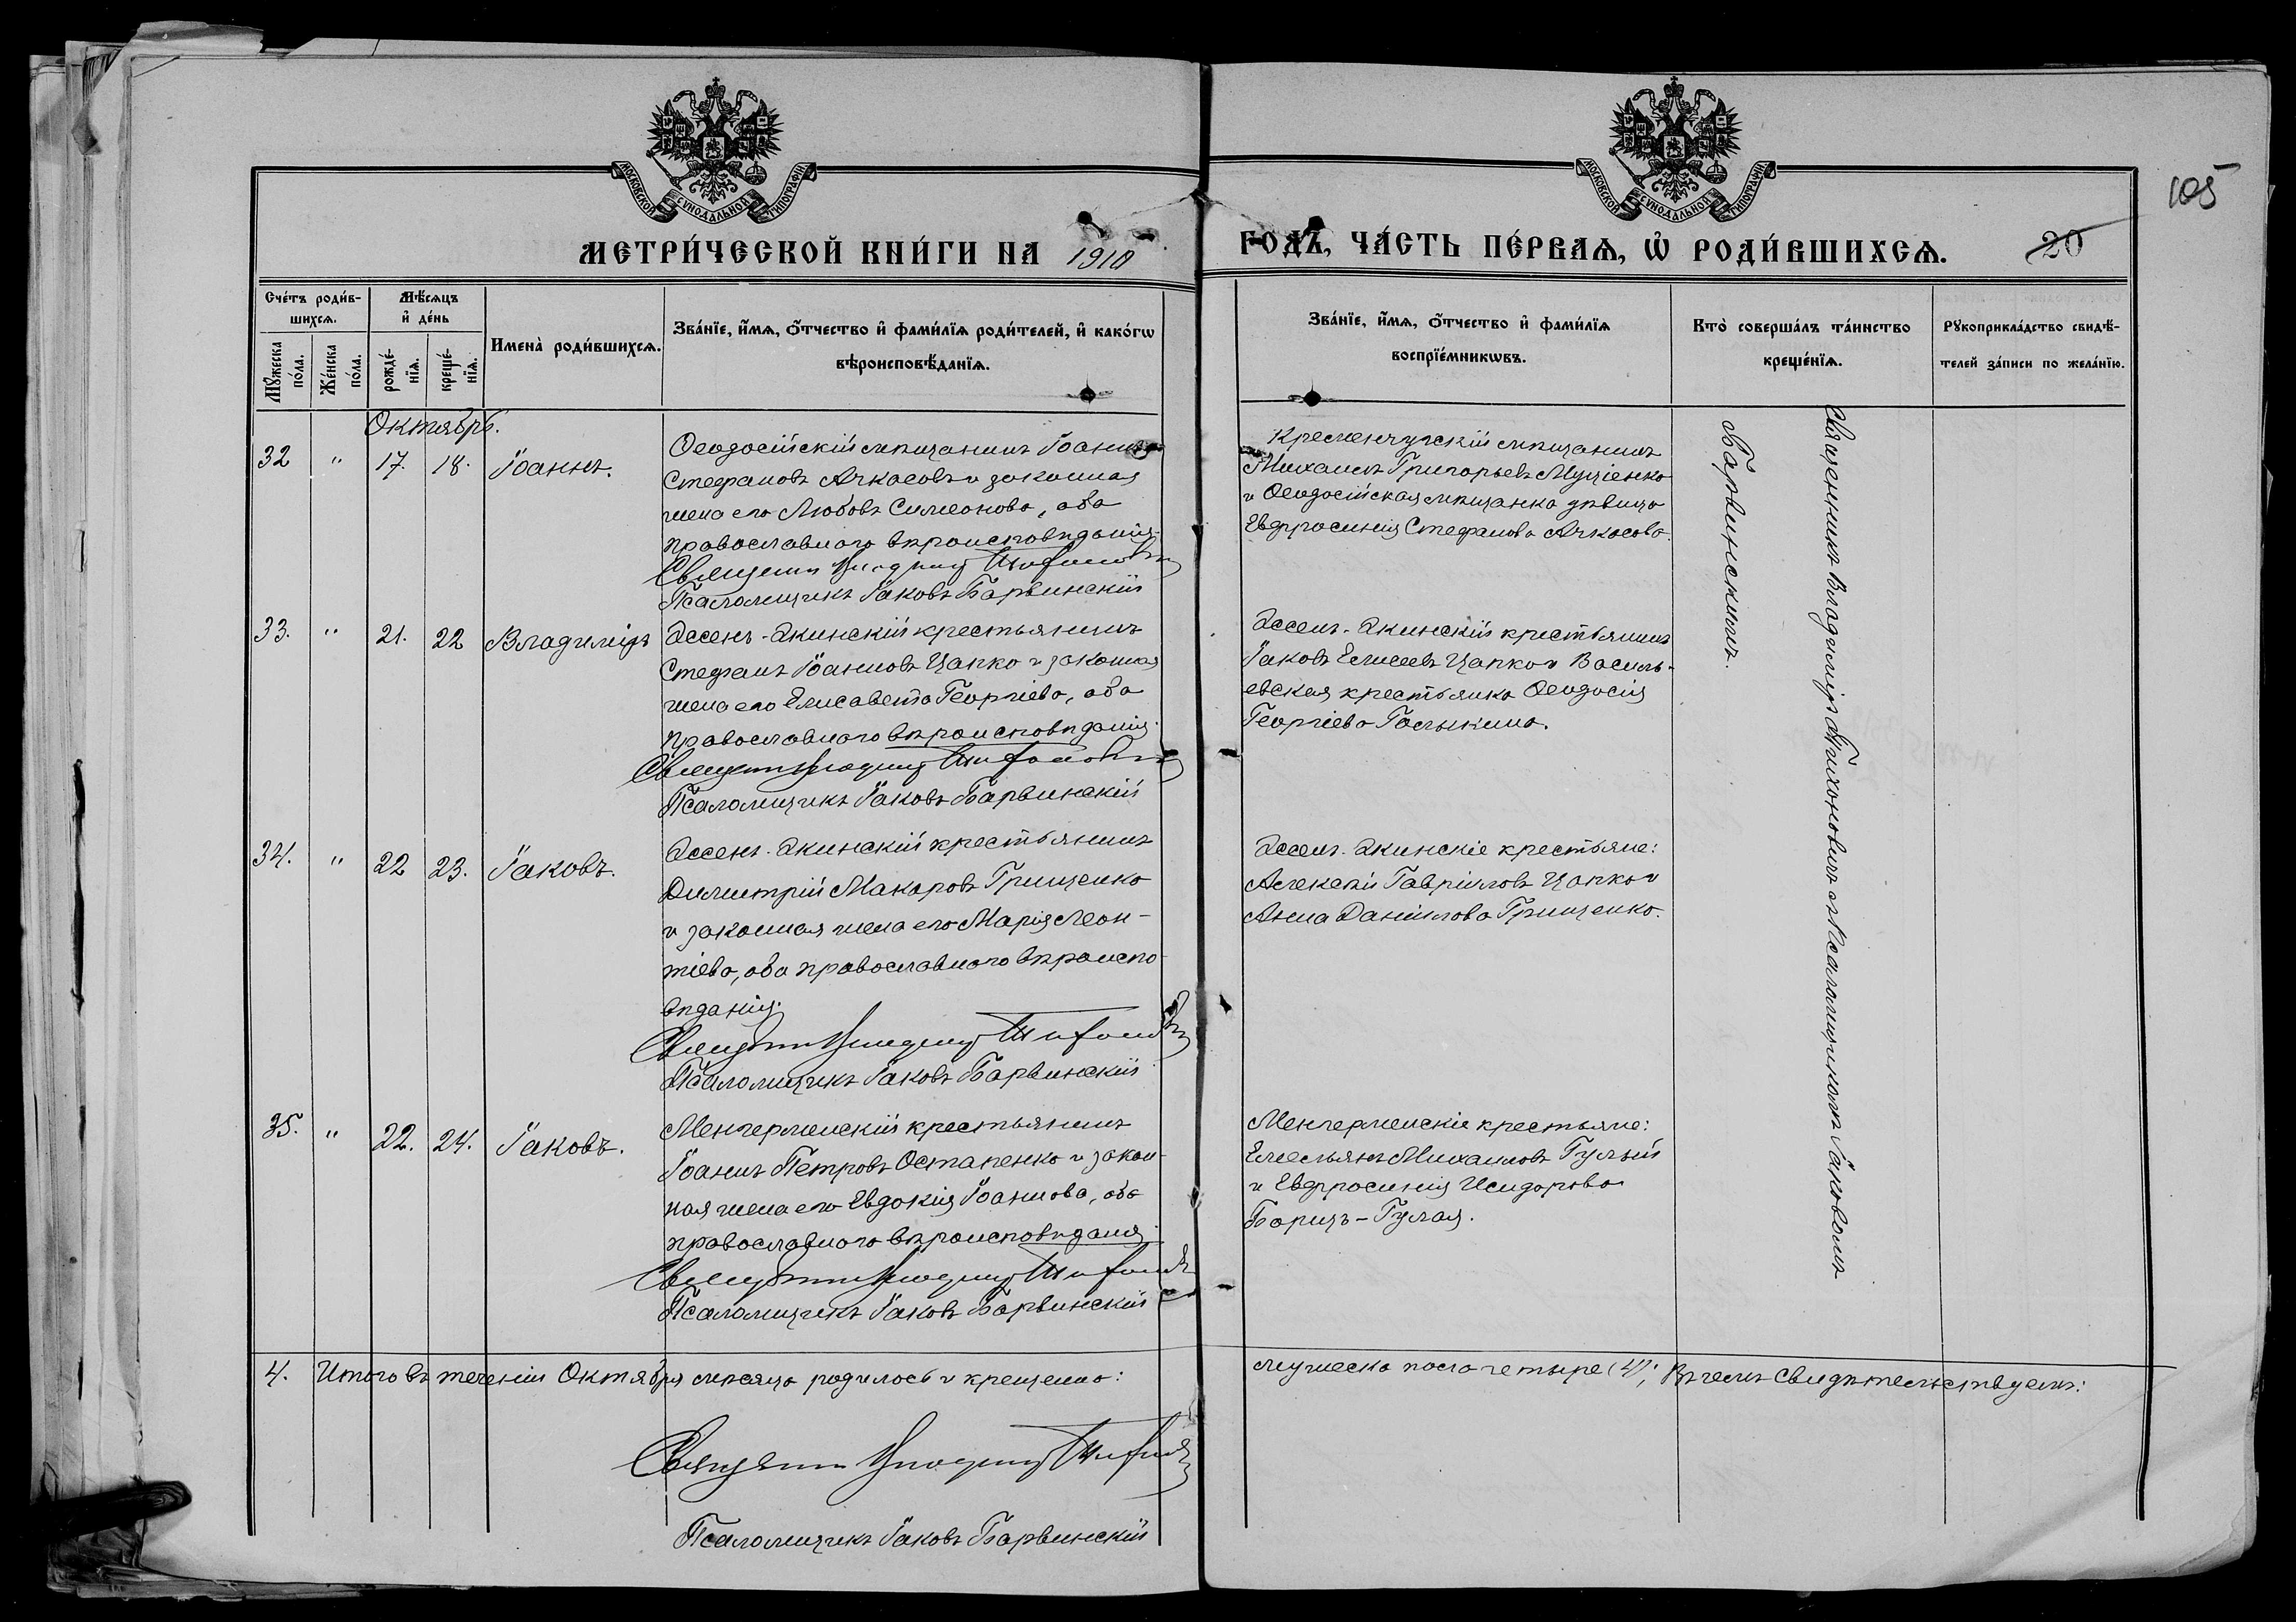 МОСКОВСКОЙ СѴНОДАЛЬНОЙ ТИПОГРАФІИ
МОСКОВСКОЙ СѴНОДАЛЬНОЙ ТИПОГРАФІИ
105
МЕТРИ́ЧЕСКОЙ КНИ́ГИ НА 1910
ГОДЪ, ЧА́СТЬ ПЕ́РВАѦ, Ѡ҆ РОДИ́ВШИХСѦ.
20
Сче́тъ роди́в-
шихсѧ.
Мꙋ́жеска по́ла.
Же́нска по́ла.
Мѣ́сѧцъ
и҆ де́нь
рожде́-
нїѧ.
креще́-
нїѧ.
Имена̀ роди́вшихсѧ.
Зва́нїе, и҆́мѧ, ѻ҆́тчество и҆ фами́лїѧ роди́телей, и҆ како́гѡ
вѣроисповѣ́данїѧ.
Зва́нїе, и҆́мѧ, ѻ҆́тчество и҆ фами́лїѧ
воспрїе́мникѡвъ.
Кто̀ соверша́лъ та́инство
креще́нїѧ.
Рꙋкоприкла́дство свидѣ́-
телей за́писи по жела́нїю.
Октябрь.
32 " 17. 18. Іоаннъ.
Ѳеодосійскій мѣщанинъ Іоаннъ
Стефановъ Ачкасовъ и законная
жена его Любовь Симеонова, оба
православнаго вѣроисповѣданія.
Псаломщикъ Іаковъ Барвинскій
Кременчугскій мѣщанинъ
Михаилъ Григорьевъ Муціенко
и Ѳеодосійская мѣщанка дѣвица
Евфросинія Стефанова Ачкасова.
Священникъ Владиміръ Тихоновичъ съ псаломщикомъ Іаковомъ
Барвинскимъ.
33. " 21. 22 Владиміръ
Эссенъ-Экинскій крестьянинъ
Стефанъ Іоанновъ Цапко и законная
жена его Елисавета Георгіева, оба
православнаго вѣроисповѣданія.
Псаломщикъ Іаковъ Барвинскій
Эссенъ-Экинскій крестьянинъ
Іаковъ Елисеевъ Цапко и Василь-
евская крестьянка Ѳеодосія
Георгіева Галыкина.
34. " 22 23. Іаковъ.
Эссенъ-Экинскій крестьянинъ
Димитрій Макаровъ Грищенко
и законная жена его Марія Леон-
тіева, оба православнаго вѣроиспо-
вѣданія.
Псаломщикъ Іаковъ Барвинскій
Эссенъ-Экинскіе крестьяне:
Алексѣй Гавріиловъ Цапко и
Анна Даніилова Грищенко.
35. " 22. 24. Іаковъ.
Менгерменскій крестьянинъ
Іоаннъ Петровъ Остапенко и закон-
ная жена его Евдокія Іоаннова, оба
православнаго вѣроисповѣданія.
Псаломщикъ Іаковъ Барвинскій
Менгерменскіе крестьяне:
Емельянъ Михаиловъ Гулый
и Евфросинія Исидорова
Борщъ-Гулая.
4. Итого въ теченіи Октября мѣсяца родилось и крещено:
мужеска пола четыре (4); Въ чемъ свидѣтельствуемъ:
Псаломщикъ Іаковъ Барвинскій